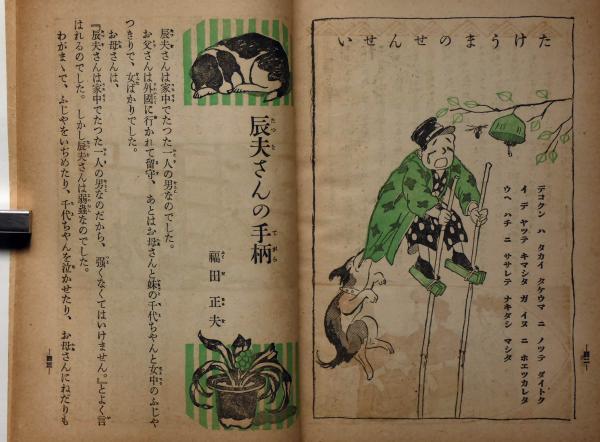 たけうまのせんせい
デコクン ハ タカイ タケウマ ニ ノツテ ダイトク
イ デ ヤツテ キマシタ ガ イヌ ニ ホエツカレタ
ウヘ ハチ ニ ササレテ ナキダシ マシタ
—四二—
辰夫さんの手柄
福田正夫
辰夫さんは家中でたつた一人の男なのでした。
お父さんは外國に行かれて留守、あとはお母さんと妹の千代ちやんと女中のふじや
つきりで、女ばかりでした。
お母さんは、
『辰夫さんは家中でたつた一人の男なのだから、強くなくてはいけません。』とよく言
はれるのでした。しかし辰夫さんは弱蟲なのでした。
わがまゝで、ふじやをいぢめたり、千代ちやんを泣かせたり、お母さんにねだりも
—四三—